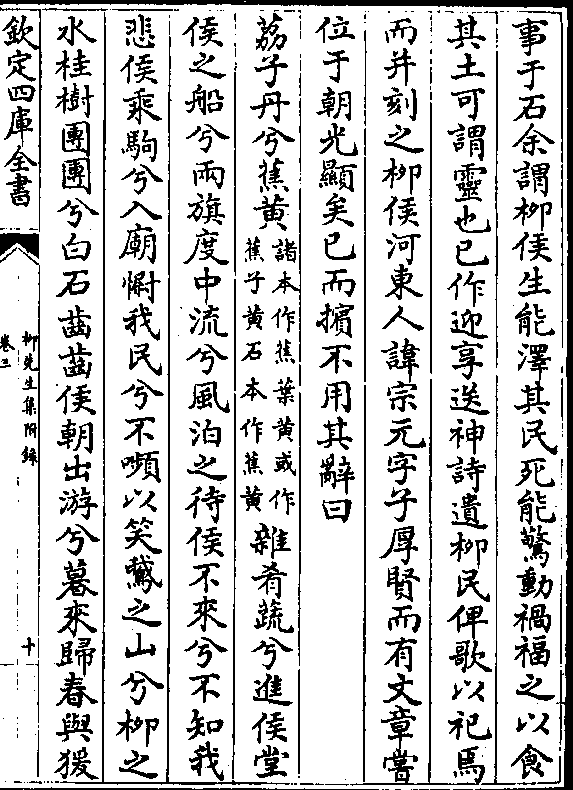 事于石余謂柳侯生能澤其民死能驚動禍福之以食
其土可謂靈也已作迎享送神詩遺柳民俾歌以祀焉
而并刻之柳侯河東人諱宗元字子厚賢而有文章嘗
位于朝光顯矣已而擯不用其辭曰
荔子丹兮蕉黃諸本作蕉葉黃或作蕉子黃石本作蕉黃雜肴蔬兮進侯堂
侯之船兮兩旗度中流兮風泊之待侯不來兮不知我
悲侯乘駒兮入廟慰我民兮不嚬以笑鵞之山兮柳之
水桂樹團團兮白石齒齒侯朝出游兮暮來歸春與猨
欽定四庫全書
柳先生集附錄
卷三
十